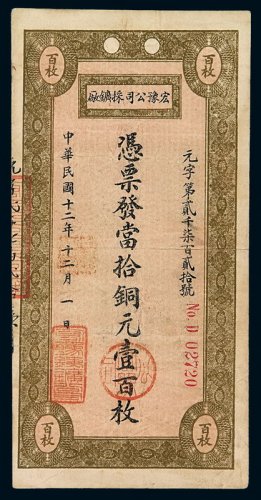 百枚
百枚
宏豫公司採鑛廠
元字第貳千柒百貳拾號
No D 02720
憑票發當拾銅元壹百枚
中華民國十二年十二月一日
百枚
百枚